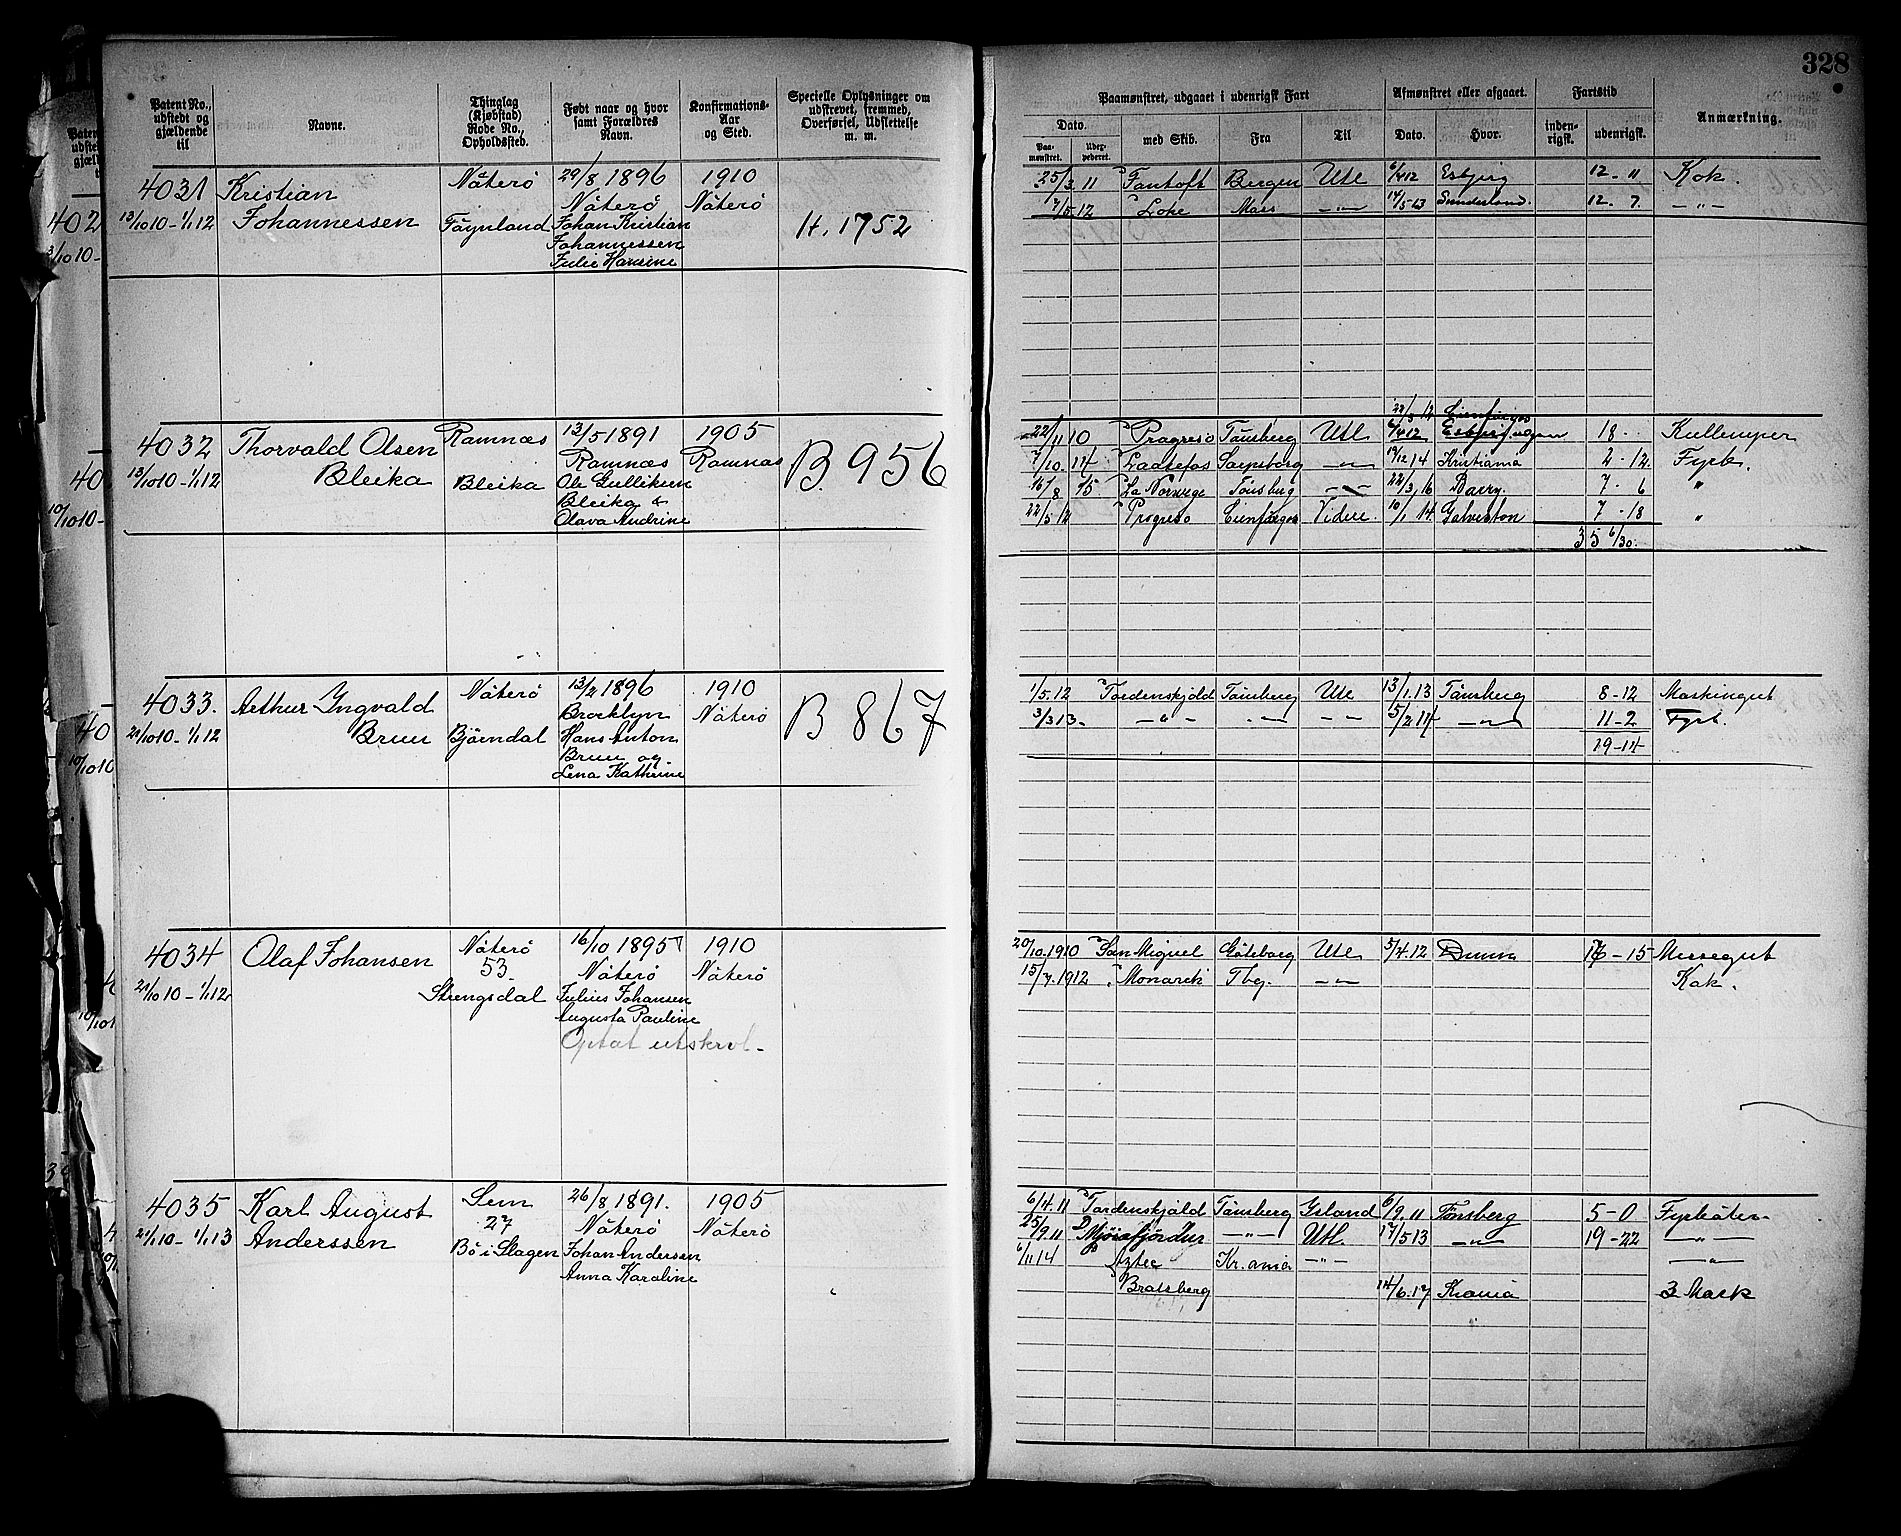 328
Patent No., udstedt og gjældende til
Navne.
Thinglag (Kjøbstad) Rode No., Opholdssted.
Født naar og hvor samt Forældres Navn.
Konfirmations-Aar og Sted.
Specielle Oplysninger om udstrevet, fremmed, Overførsel, Udslettelse m. m.
Paamønstret, udgaaet i udenrigsk Fart
Afmønstret eller afgaaet.
Fartstid
Anmærkning.
Dato.
Paa-mønstret.
med Skib.
Fra
Til
Dato.
Hvor.
inden-rigsk.
udenrigsk.
4031 Kristian Nøterö 29/8 1896 1910
Nøterö Nøterö
13/10 10 - 1/1 12 Johannessen Föynland Johan Kristian H. 1752
Johannessen
Julie Hansine
25/3 11 Fantoft Bergen Utl 6/4 12 Esbjerg 12 - 11 Kok.
7/5 12 Loke Moss -„- 17/5 13 Sunderland 12 - 7. -„-
4032 Thorvald Olsen Ramnæs 13/5 1891 1905 B. 956
Ramnæs Ramnæs
13/10 10 - 1/1 12 Bleika Bleika Ole Gulliksen
Bleika &
Olava Andrine
22/3 12 Cienfuegos
22/11 10 Progreso Tönsberg Utl 18 - Kullemper
7/10 14 Laatefos Sarpsborg -„- 19/12 14 Kristiania 2 - 12. Fyrb.
16/8 15 La Norvege Tönsberg -„- 22/3 16 Barry. 7 - 6 „
22/5 12 Progreso Cienfuegos Videre. 10/1 14 Galveston 7 - 18 „
35 6/30.
4033. Arthur Yngvald Nøterö 13/2 1896 1910 B 867
Brocklyn Nøterö
21/10 10 - 1/1 12 Bruu Bjørndal Hans Anton
Bruu og
Lena Kathrine
1/5 12 Tordenskjold Tönsberg Utl 13/1 13 Tönsberg 8-12 Maskingut
3/3 13. -„- -„- -„- 5/2 14 -„- 11-2 Fyrb.
19-14
4034 Olaf Johansen Nøterö 16/10 1895 1910
53. Nøterö Nøterö
21/10 10 - 1/1 12 Strengsdal Julius Johansen
Augusta Pauline
Optat utskrvl.
20/10 1910 San Miguel Göteborg Utl 5/4 12 17-15 Messegut
15/7 1912 Monarch Tbg. -„- Kok.
4035 Karl August Sem 26/8 1891. 1905
27 Nøterö Nøterö
21/10 - 1/1 13 Anderssen Bö i Slagen Johan Andersen
Anna Karoline
6/4 11 Tordenskjold Tönsberg Island 6/9 11 Tönsberg 5-0 Fyrböter
25/9 11 Mjóafjördur -„- Utl 17/5 13 -„- 19-22 -„-
6/11 14 Aztec Kr.ania -„- -„-
Bratsberg 14/6 17 Krania 3 Mask